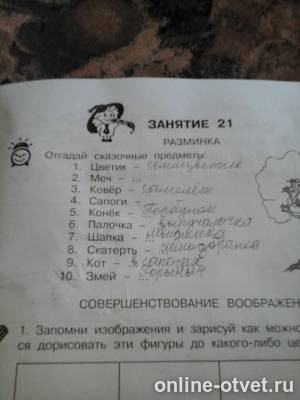 ЗАНЯТИЕ 21
РАЗМИНКА
Отгадай сказочные предметы:
1. Цветик – семицветик
2. Меч – ...
3. Ковёр – самолёт
4. Сапоги – ...
5. Конёк – Горбунок
6. Палочка – выручалочка
7. Шапка – невидимка
8. Скатерть – самобранка
9. Кот – в сапогах
10. Змей – Горыныч
СОВЕРШЕНСТВОВАНИЕ ВООБРАЖЕН
1. Запомни изображения и зарисуй как можно
ся дорисовать эти фигуры до какого-либо це
online-otvet.ru